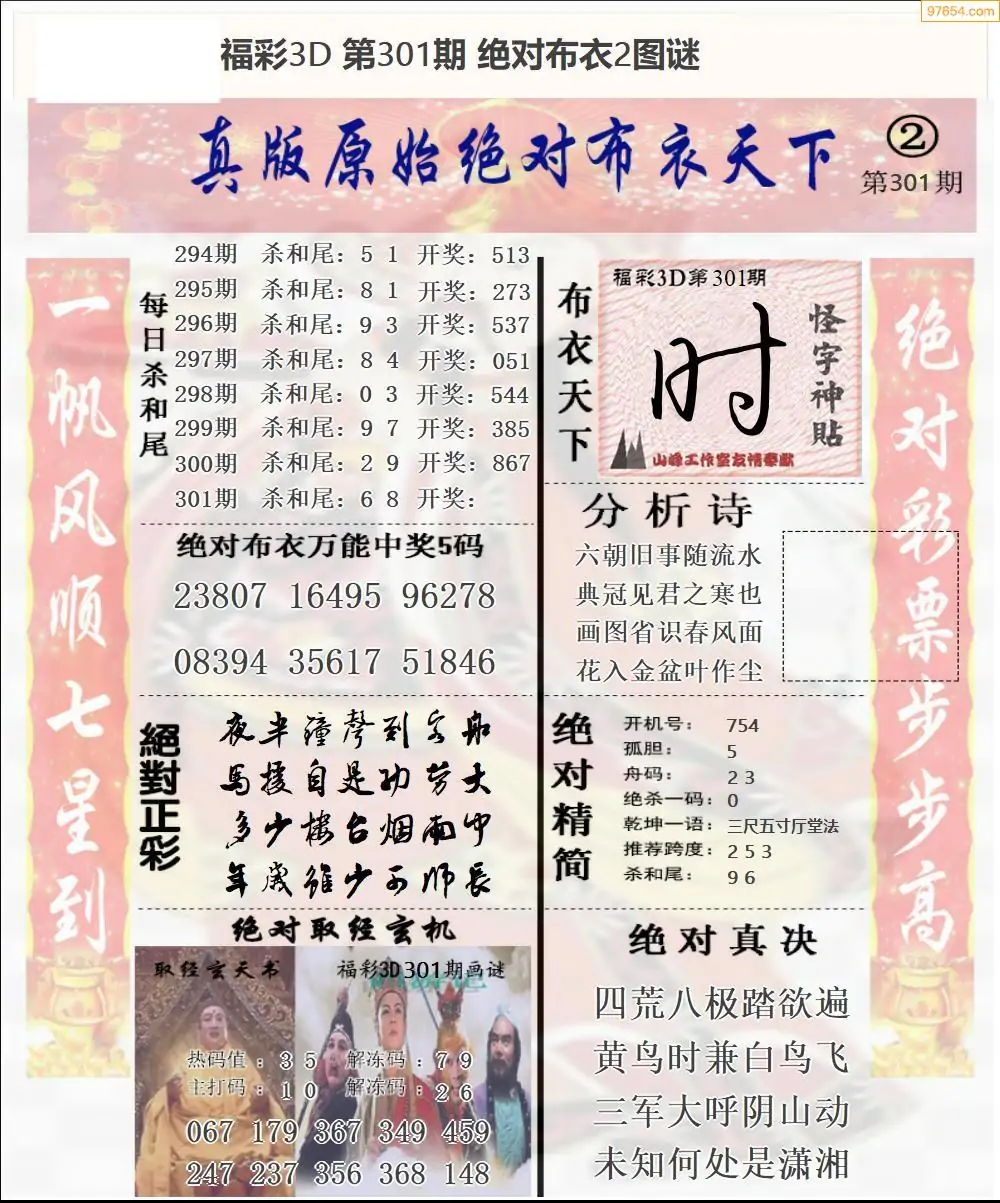 97654.com
福彩3D 第301期 绝对布衣2图谜
真版原始绝对布衣天下
②
第301期
一帆风顺七星到
每日杀和尾
294期 杀和尾：5 1 开奖：513
295期 杀和尾：8 1 开奖：273
296期 杀和尾：9 3 开奖：537
297期 杀和尾：8 4 开奖：051
298期 杀和尾：0 3 开奖：544
299期 杀和尾：9 7 开奖：385
300期 杀和尾：2 9 开奖：867
301期 杀和尾：6 8 开奖：
绝对布衣万能中奖5码
23807 16495 96278
08394 35617 51846
絕對正彩
夜半鐘聲到客船
馬援自是功劳大
多少楼台烟雨中
年歲雖少可师长
绝对取经玄机
取经玄天书
福彩3D301期画谜
热码值：3 5 解冻码：7 9
主打码：1 0 解冻码：2 6
067 179 367 349 459
247 237 356 368 148
布衣天下
福彩3D第301期
时
怪字神貼
山峰工作室友情奉献
分析诗
六朝旧事随流水
典冠见君之寒也
画图省识春风面
花入金盆叶作尘
绝对精简
开机号：754
孤胆：5
舟码：2 3
绝杀一码：0
乾坤一语：三尺五寸厅堂法
推荐跨度：2 5 3
杀和尾：9 6
绝对真决
四荒八极踏欲遍
黄鸟时兼白鸟飞
三军大呼阴山动
未知何处是潇湘
绝对彩票步步高